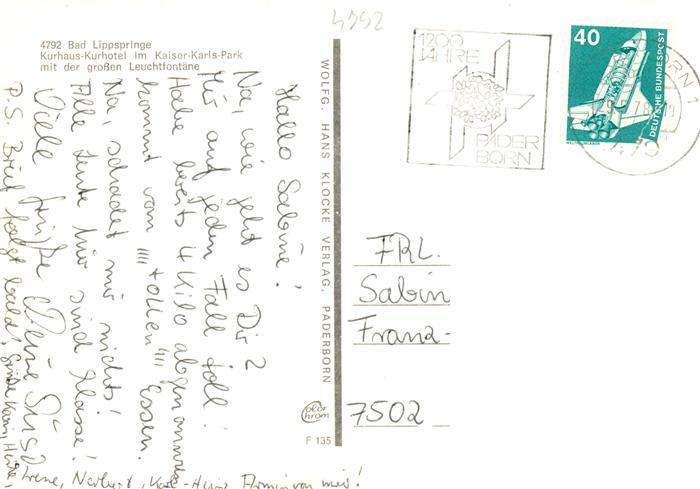 4792
4792 Bad Lippspringe
Kurhaus-Kurhotel im Kaiser-Karls-Park
mit der großen Leuchtfontäne
Hallo Sabine!
Na, wie geht es Dir?
Mir auf jeden Fall toll!
Habe bereits 4 Kilo abgenommen
kommt vom """tollen"" Essen.
Na, schadet mir nichts!
Alle Leute hier sind Klasse!
Viele Grüße Deine
P.S. Brief folgt bald! Grüße
Irene, Norbert, Karl-Heinz von mir!
WOLFG. HANS KLOCKE VERLAG, PADERBORN
Color
chrom
F 135
1200
JAHRE
PADER
BORN
40
DEUTSCHE BUNDESPOST
FRL.
Sabin
Franz-
7502